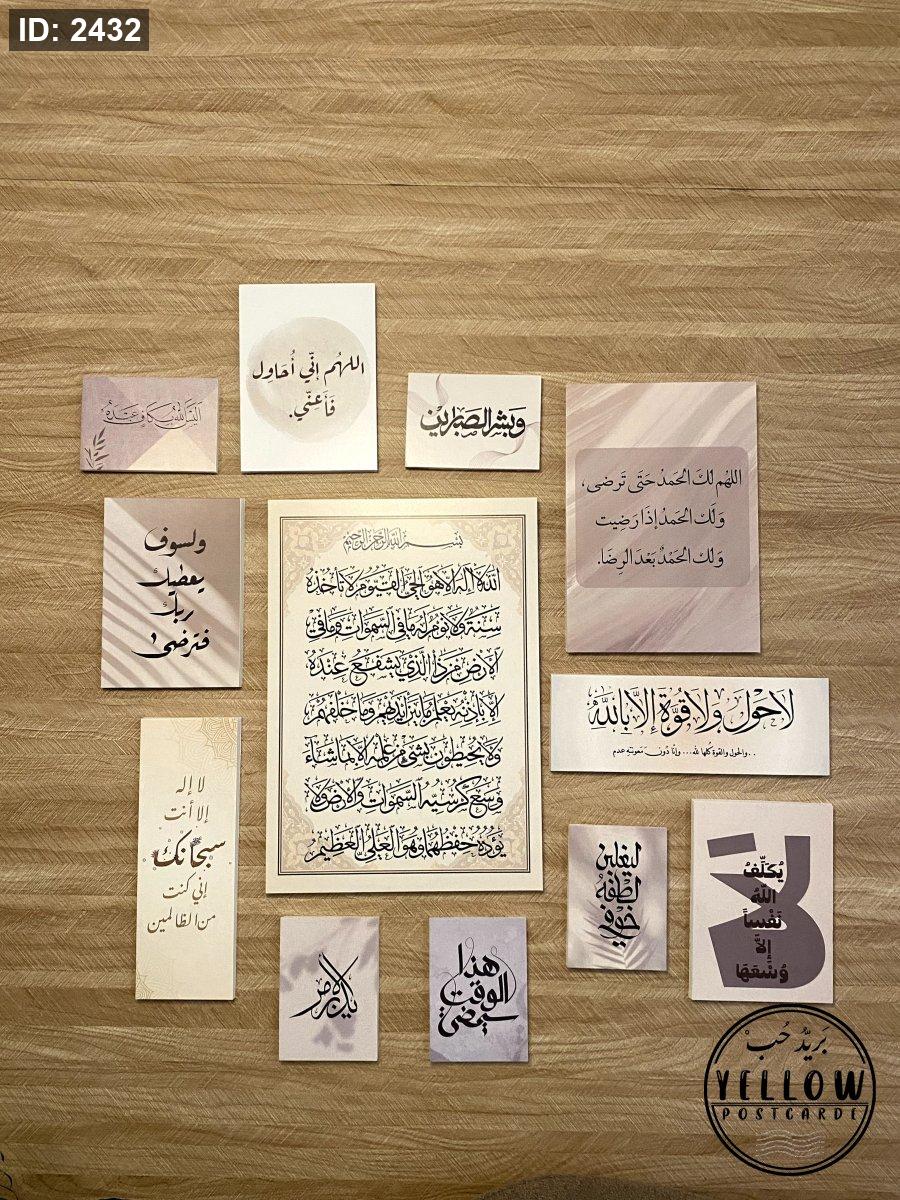 ID: 2432
اللهُم إنّي أُحَاوِل
فَأَعِنّي.
أليس الله بكاف عبده
وَبَشِّرِ الصَّابِرِينَ
اللهُم لكَ الحَمدُ حَتَى تَرضى،
وَلَك الحَمدُ إذَا رَضِيت
وَلك الحَمْدُ بَعْدَ الرِضَا.
ولسوف
يعطيك
ربك
فترضى
بسم الله الرحمن الرحيم
الله لا إله إلا هو الحي القيوم لا تأخذه
سنة ولا نوم له ما في السموات وما في
الأرض من ذا الذي يشفع عنده
إلا بإذنه يعلم ما بين أيديهم وما خلفهم
ولا يحيطون بشيء من علمه إلا بما شاء
وسع كرسيه السموات والأرض ولا
يؤوده حفظهما وهو العلي العظيم
لا حَوْلَ وَلا قُوَّةَ إِلاَّ بِاللَّهِ
..والحول والقوة كلها لله... وإنا دُون معونته عدم
لا إله
إلا أنت
سبحانك
إني كنت
من الظالمين
ليغلبن
لطفه
خوفي
لا
يُكَلِّفُ
اللَّهُ
نَفْساً
إِلاَّ
وُسْعَهَا
يدبر الأمر
هذا
الوقت
سيمضي
بَريدُ حُب
YELLOW
POSTCARDE